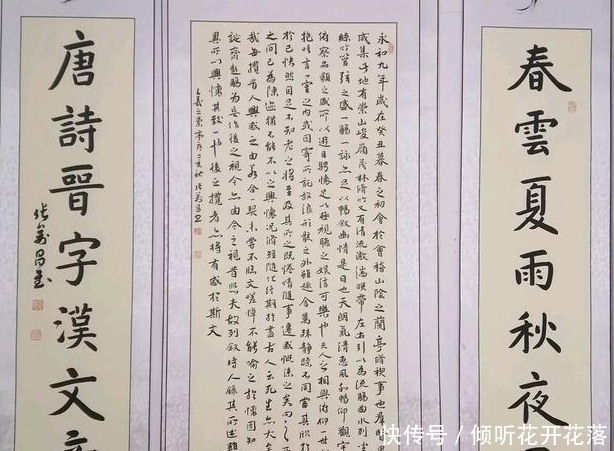 春雲夏雨秋夜
永和九年歲在癸丑暮春之初會於會稽山陰之蘭亭脩禊事也羣
咸集此地有崇山峻嶺茂林脩竹又有清流激湍暎帶左右引以為流觴曲水列
絲竹管弦之盛一觴一詠亦足以暢敘幽情是日也天朗氣清惠風和暢仰觀宇
俯察品類之盛所以遊目騁懷足以極視聽之娛信可樂也夫人之相與俯仰一世
抱悟言一室之內或因寄所託放浪形骸之外雖趣舍萬殊靜躁不同當其欣於
於己怏然自足不知老之將至及其所之既惓情隨事遷感慨係之矣向之
之間已為陳迹猶不能不以之興懷況脩短隨化終期於盡古人云死生亦大
我每攬昔人興感之由若合一契未嘗不臨文嗟悼不能喻之於懷固知
誕齊彭殤為妄作後之視今亦由今之視昔悲夫故列敘時人錄其所述雖
異所以興懷其致一也後之攬者亦將有感於斯文
王羲之蘭亭序
唐詩晉字漢文
快传号 / 倾听花开花落